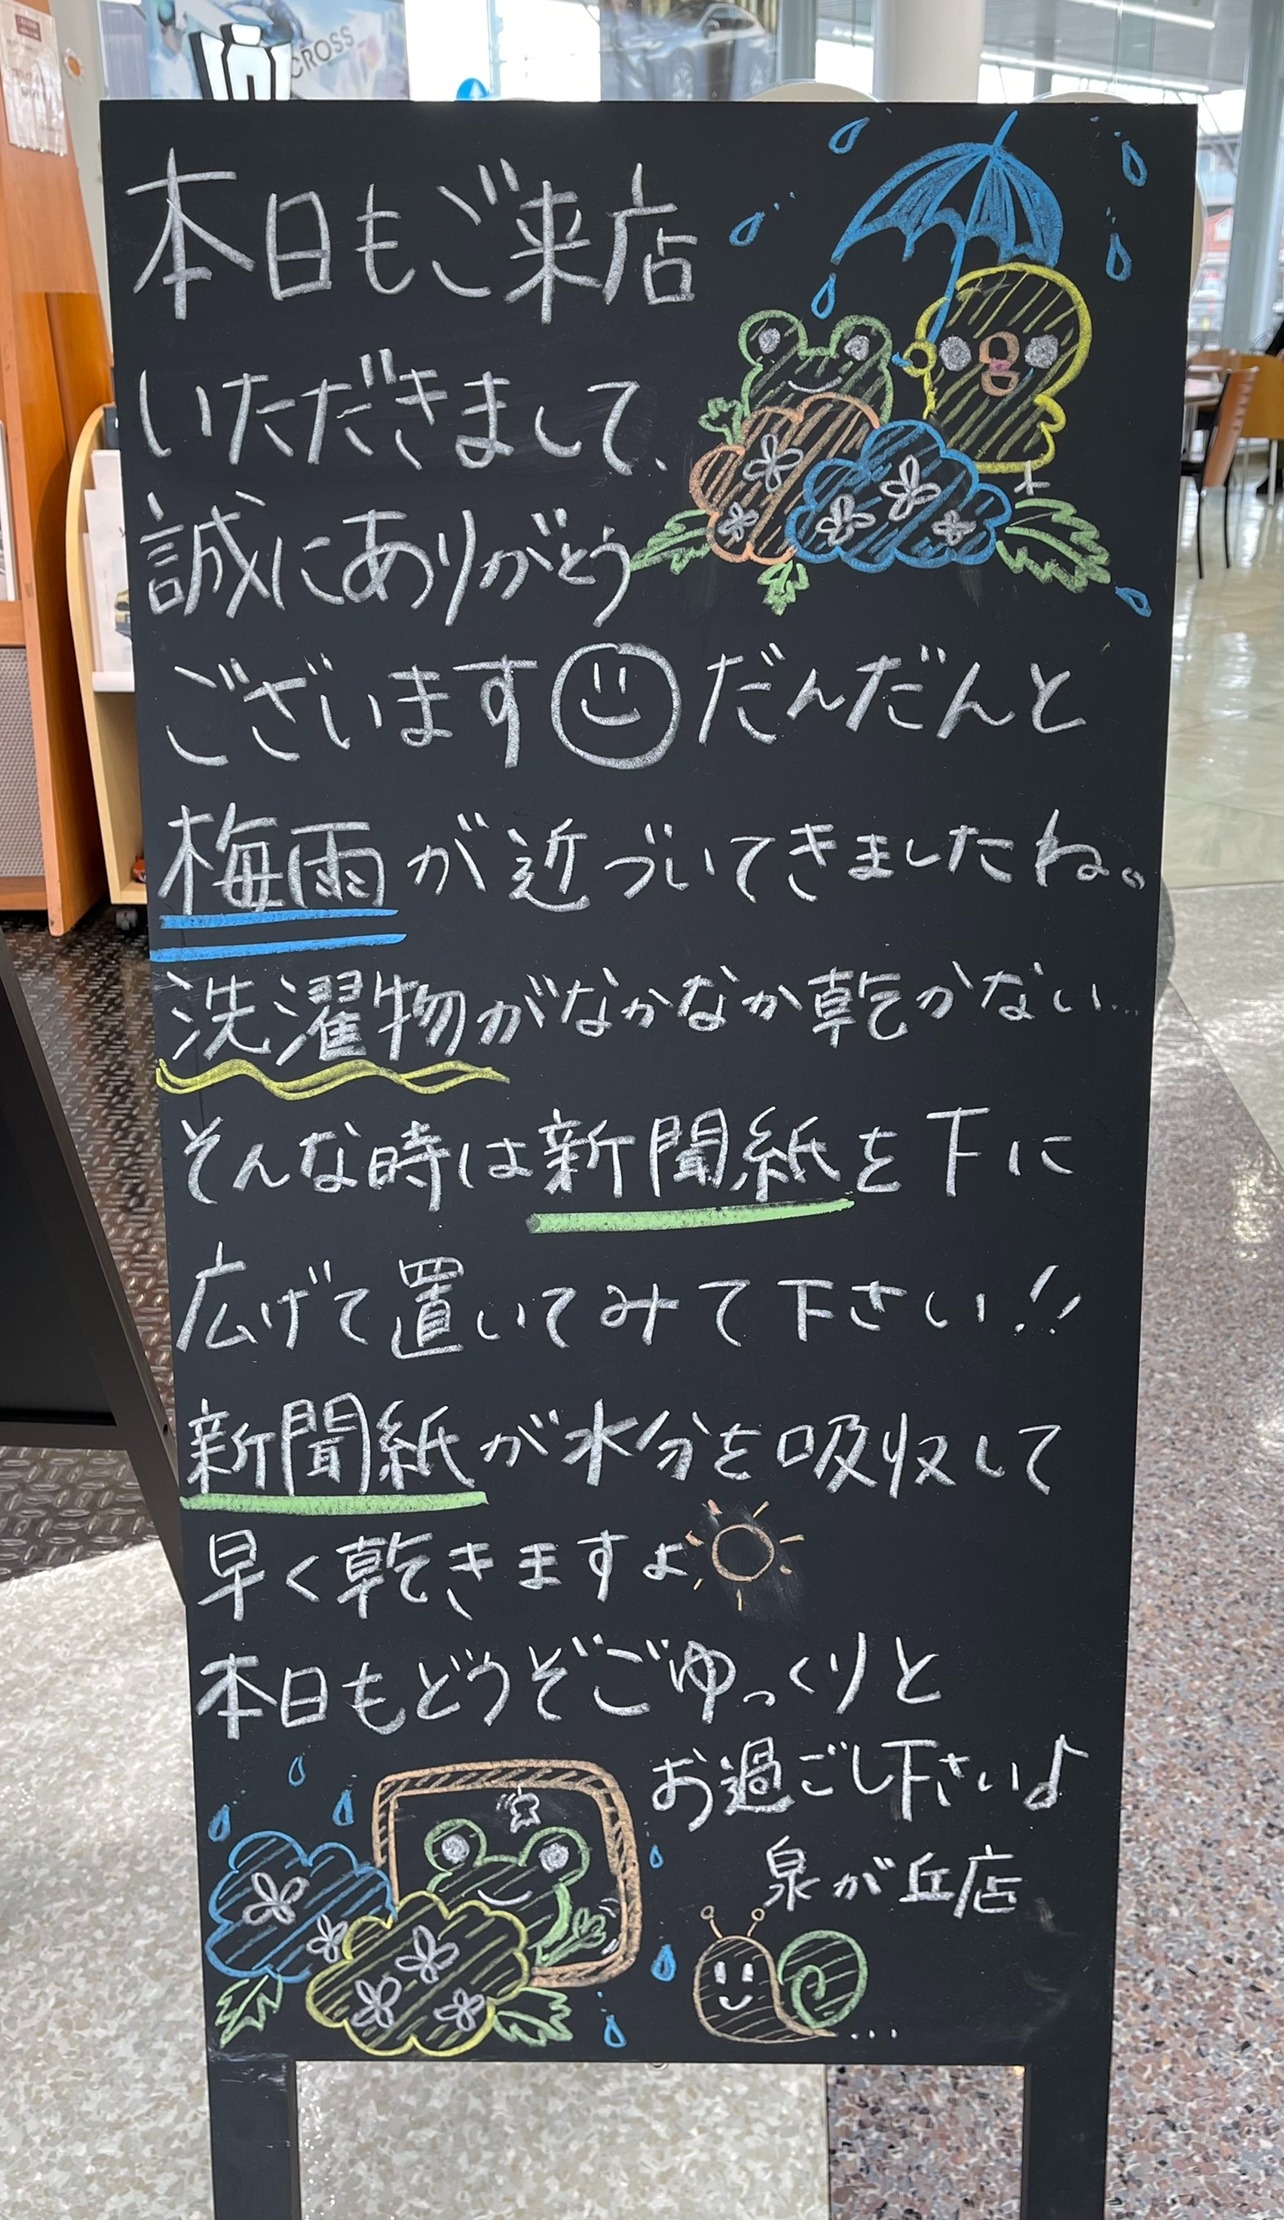 CROSS
本日もご来店
いただきまして、
誠にありがとう
ございます だんだんと
梅雨が近づいてきましたね。
洗濯物がなかなか乾かない…
そんな時は新聞紙を下に
広げて置いてみて下さい!!
新聞紙が水分を吸収して
早く乾きますよ
本日もどうぞごゆっくりと
お過ごし下さい♪
泉が丘店